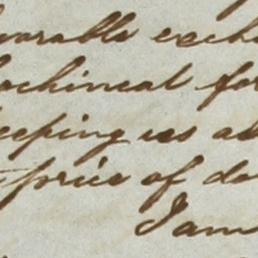 vorable exch
ochineal for
eeping us ad
price of do
I am